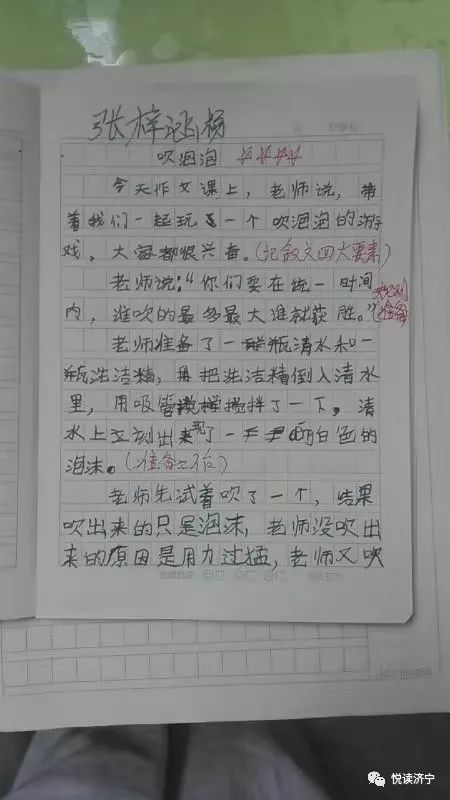 张梓涵杨
吹泡泡
今天作文课上，老师说，带
着我们一起玩了一个吹泡泡的游
戏，大家都很兴奋。(记叙文四大要素)
老师说：“你们要在统一时间
内，谁吹的最多最大谁就获胜。”规则
准备
老师准备了一瓶清水和一
瓶洗洁精，再把洗洁精倒入清水
里，用吸管搅拌了一下，清
水上立刻出来现了一层白色的
泡沫。(准备工作)
老师先试着吹了一个，结果
吹出来的只是泡沫，老师没吹出
来的原因是用力过猛，老师又吹
悦读济宁